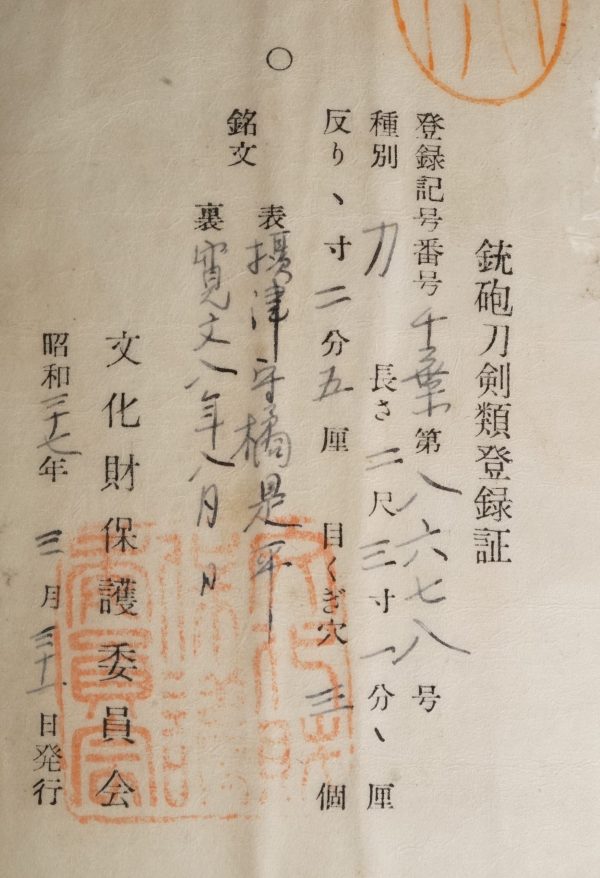 銃砲刀剣類登録証
登録記号番号 千葉 第 八六七八 号
種別 刀 長さ 二 尺 三 寸 一 分 、 厘
反り 、 寸 二 分 五 厘 目くぎ穴 三 個
銘文 表 摂津守橘是平
裏 寛文八年八月 日
文化財保護委員会
昭和三十七年 三 月 三十一 日発行